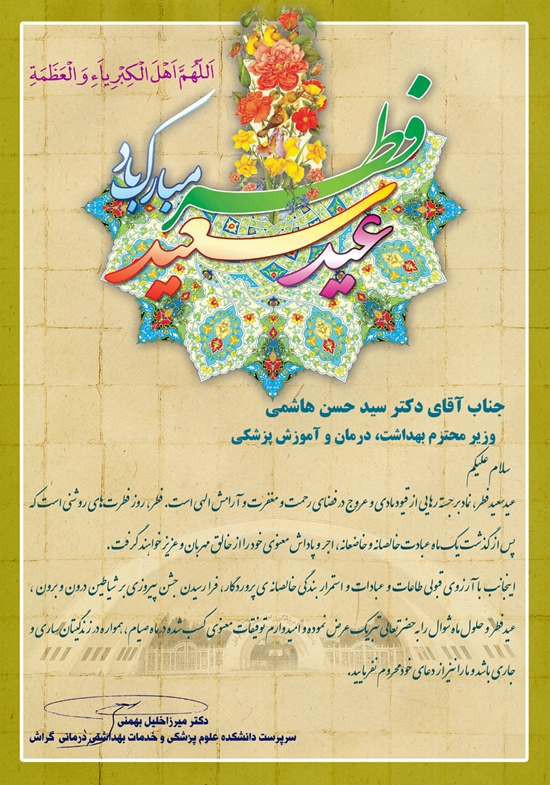 اَللّهُمَّ اَهْلَ الْكِبْرِياءِ وَ الْعَظَمَةِ
عید سعید فطر مبارک باد
جناب آقای دکتر سید حسن هاشمی
وزیر محترم بهداشت، درمان و آموزش پزشکی
سلام علیکم
عید سعید فطر، نماد برجسته رهایی از قیود مادی و عروج در فضای رحمت و مغفرت و آرامش الهی است. فطر، روز فطرت‌های روشنی است که
پس از گذشت یک ماه عبادت خالصانه و خاضعانه، اجر و پاداش معنوی خود را از خالق مهربان و عزیز خواهند گرفت.
اینجانب با آرزوی قبولی طاعات و عبادات و استمرار بندگی خالصانه ی پروردگار، فرا رسیدن جشن پیروزی بر شیاطین درون و برون ،
عید فطر و حلول ماه شوال را به حضرتعالی تبریک عرض نموده و امیدوارم توفیقات معنوی کسب شده در ماه صیام ، همواره در زندگیتان ساری و
جاری باشد و ما را نیز از دعای خود محروم نفرمایید.
دکتر میرزاخلیل بهمنی
سرپرست دانشکده علوم پزشکی و خدمات بهداشتی درمانی گراش